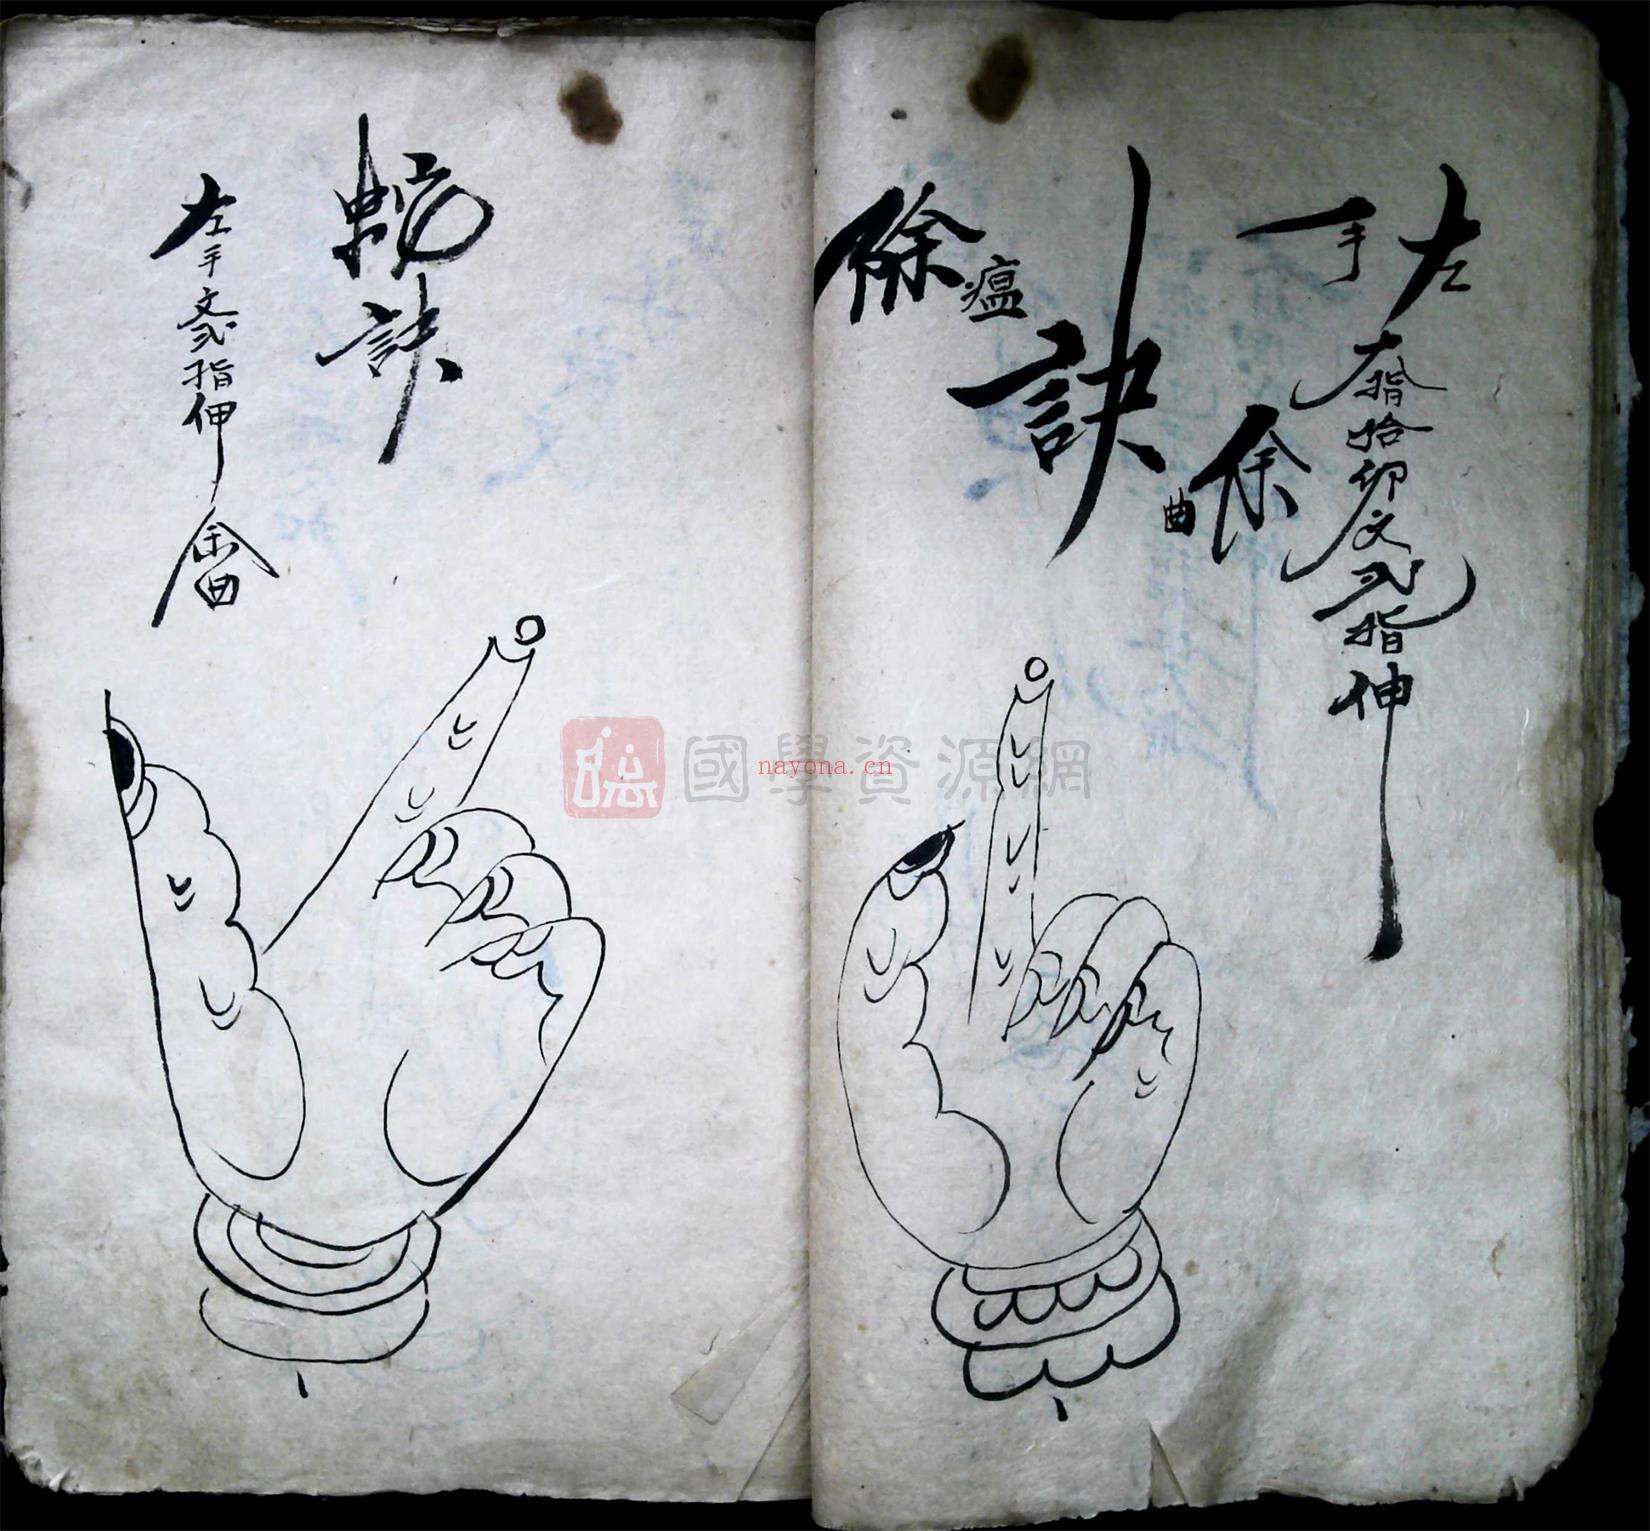 左手
大指掐卯文弍指伸
徐曲
除瘟訣
蛇訣
左手文弍指伸
余曲
國學資源網
nayona.cn